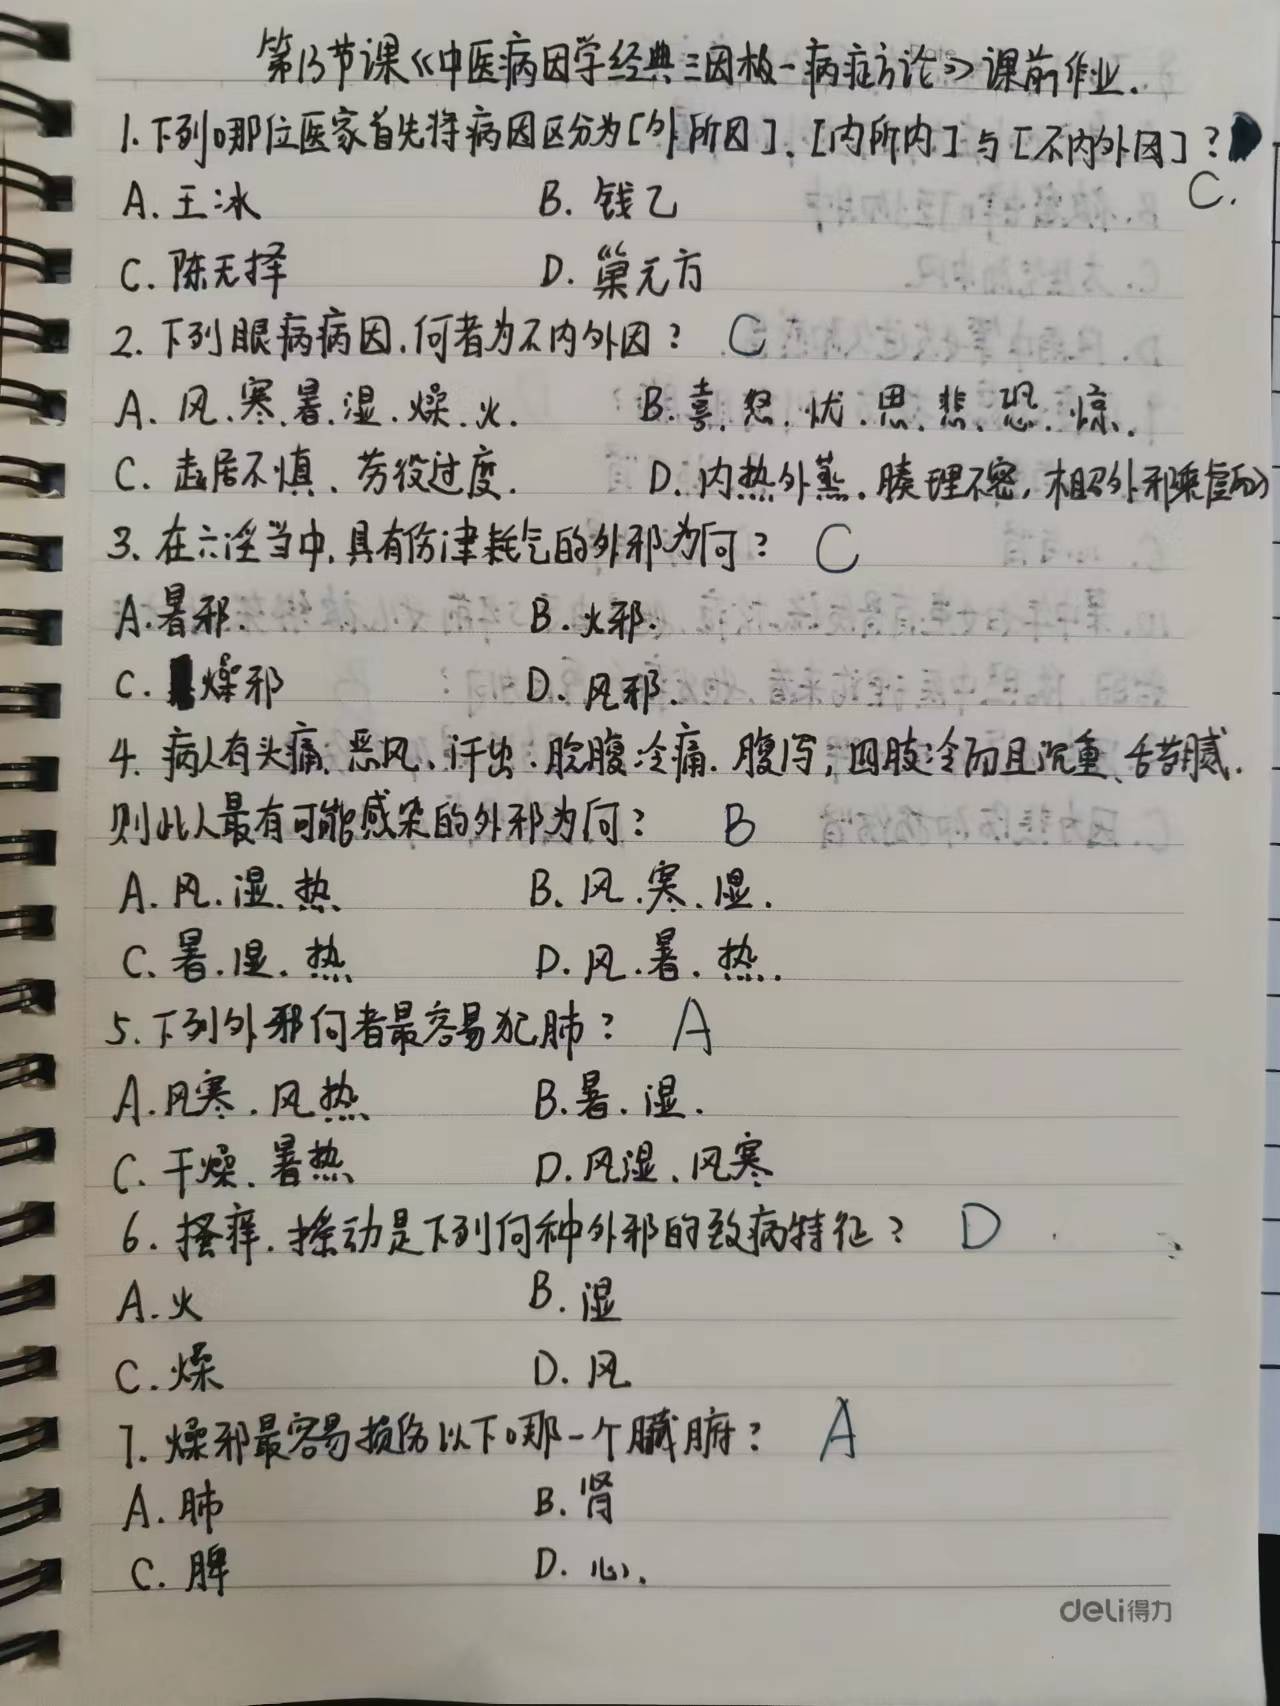 第13节课《中医病因学经典三因极一病症方论》课前作业.
1.下列哪位医家首先将病因区分为[外所因]、[内所内]与[不内外因]?
C.
A.王冰 B.钱乙
C.陈无择 D.巢元方
2.下列眼病病因,何者为不内外因? C
A.风.寒.暑.湿.燥.火. B.喜.怒.忧.思.悲.恐.惊.
C.起居不慎、劳役过度. D.内热外蒸.腠理不密,相召外邪乘虚而入
3.在六淫当中,具有伤津耗气的外邪为何? C
A.暑邪. B.火邪.
C.燥邪 D.风邪.
4.病人有头痛、恶风、汗出、脘腹冷痛.腹泻;四肢冷而且沉重、舌苔腻.
则此人最有可能感染的外邪为何? B
A.风.湿.热 B.风.寒.湿.
C.暑.湿.热 D.风.暑.热.
5.下列外邪何者最容易犯肺? A
A.风寒.风热 B.暑.湿.
C.干燥.暑热 D.风湿.风寒
6.搔痒.摇动是下列何种外邪的致病特征? D
A.火 B.湿
C.燥 D.风
7.燥邪最容易损伤以下哪一个臟腑? A
A.肺 B.肾
C.脾 D.心.
deli得力